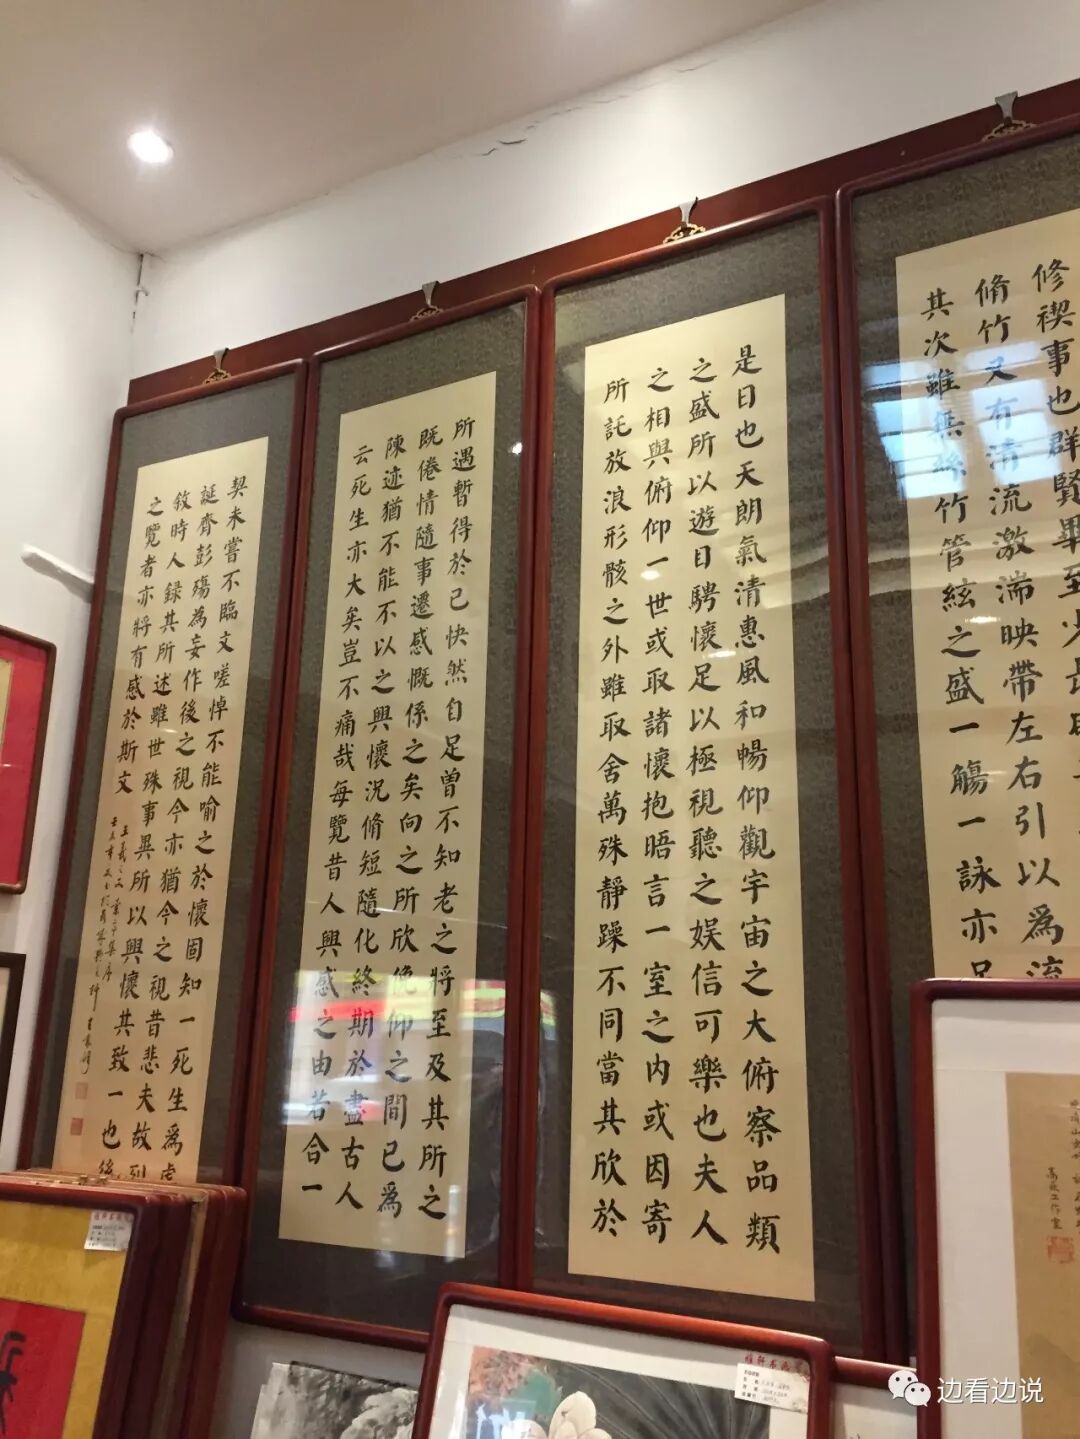 修禊事也群賢畢至少長
脩竹又有清流激湍映帶左右引以爲流
其次雖無絲竹管絃之盛一觴一詠亦足
是日也天朗氣清惠風和暢仰觀宇宙之大俯察品類
之盛所以遊目騁懷足以極視聽之娱信可樂也夫人
之相與俯仰一世或取諸懷抱晤言一室之内或因寄
所託放浪形骸之外雖取舍萬殊靜躁不同當其欣於
所遇暫得於已快然自足曾不知老之將至及其所之
既倦情隨事遷感慨係之矣向之所欣俛仰之間已爲
陳迹猶不能不以之興懷況脩短隨化終期於盡古人
云死生亦大矣豈不痛哉每覽昔人興感之由若合一
契未嘗不臨文嗟悼不能喻之於懷固知一死生爲虛
誕齊彭殤為妄作後之視今亦猶今之視昔悲夫故列
敘時人録其所述雖世殊事異所以興懷其致一也後
之覽者亦將有感於斯文
王羲之文
邊看邊說